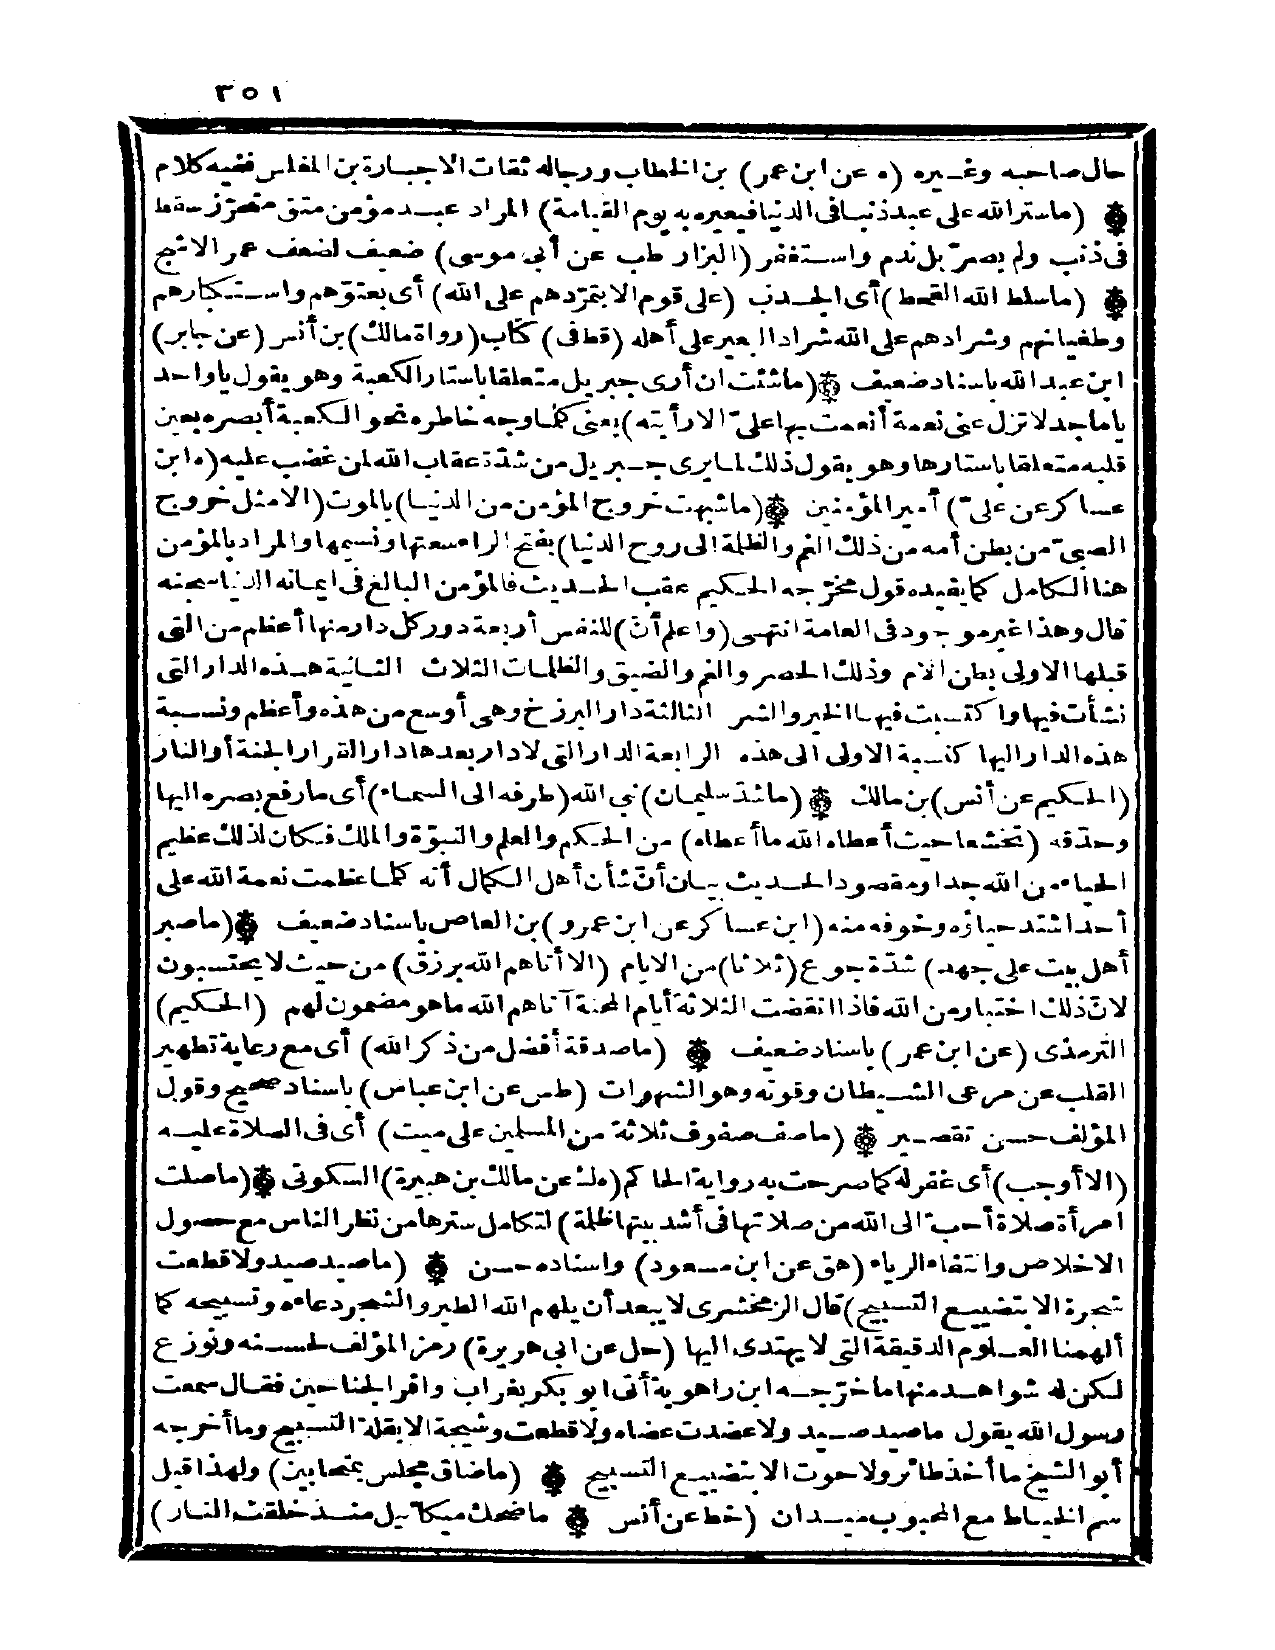 ٣٥١
حال صاحبه وغيره (ه عن ابن عمر) بن الخطاب ورجاله ثقات الا جبارة بن المغلس ففيه كلام
(ما ستر الله على عبد ذنبا فى الدنيا فيعيره به يوم القيامة) المراد عبد مؤمن متق متحرّز سقط
فى ذنب ولم يصرّ بل ندم واستغفر (البزار طب عن أبى موسى) ضعيف لضعف عمر الاشج
(ما سلط الله القحط) أى الجدب (على قوم الا بتمرّدهم على الله) أى بعتوّهم واستكبارهم
وطغيانهم وشرادهم على الله شراد البعير على أهله (قط فى) كتاب (رواة مالك) بن أنس (عن جابر)
ابن عبد الله باسناد ضعيف (ما شئت ان أرى جبريل متعلقا باستار الكعبة وهو يقول يا واحد
يا ماجد لا تزل عنى نعمة أنعمت بها علىّ الا رأيته) يعنى كلما وجه خاطره نحو الكعبة أبصره بعين
قلبه متعلقا باستارها وهو يقول ذلك لما يرى جبريل من شدّة عقاب الله لمن غضب عليه (ابن
عساكر عن علىّ) أمير المؤمنين (ما شبهت خروج المؤمن من الدنيا) بالموت (الا مثل خروج
الصبىّ من بطن أمه من ذلك الغم والظلمة الى روح الدنيا) بفتح الراء سعتها ونسيمها والمراد بالمؤمن
هنا الكامل كما يفيده قول مخرّجه الحكيم عقب الحديث فالمؤمن البالغ فى ايمانه الدنيا سجنه
قال وهذا غير موجود فى العامة انتهى (واعلم أن) للنفس أربعة دور كل دار منها أعظم من التى
قبلها الاولى بطن الام وذلك الحصر والغم والضيق والظلمات الثلاث الثانية هذه الدار التى
نشأت فيها واكتسبت فيها الخير والشر الثالثة دار البرزخ وهى أوسع من هذه وأعظم ونسبة
هذه الدار اليها كنسبة الاولى الى هذه الرابعة الدار التى لا دار بعدها دار القرار الجنة أو النار
(الحكيم عن أنس) بن مالك (ما شدّ سليمان) نبى الله (طرفه الى السماء) أى ما رفع بصره اليها
وحدّقه (تخشعا حيث أعطاه الله ما أعطاه) من الحكم والعلم والنبوّة والملك فكان لذلك عظيم
الحياء من الله جدا ومقصود الحديث بيان أنّ شأن أهل الكمال أنه كلما عظمت نعمة الله على
أحد اشتد حياؤه وخوفه منه (ابن عساكر عن ابن عمرو) بن العاص باسناد ضعيف (ما صبر
أهل بيت على جهد) شدّة جوع (ثلاثا) من الايام (الا أتاهم الله برزق) من حيث لا يحتسبون
لانّ ذلك اختبار من الله فاذا انقضت الثلاثة أيام المحنة آتاهم الله ما هو مضمون لهم (الحكيم)
الترمذى (عن ابن عمر) باسناد ضعيف (ما صدقة أفضل من ذكر الله) أى مع رعاية تطهير
القلب عن مرعى الشيطان وقوته وهو الشهوات (طس عن ابن عباس) باسناد صحيح وقول
المؤلف حسن تقصير (ما صف صفوف ثلاثة من المسلمين على ميت) أى فى الصلاة عليه
(الا أوجب) أى غفر له كما صرحت به رواية الحاكم (ه ك عن مالك بن هبيرة) السكونى (ما صلت
امرأة صلاة أحبّ الى الله من صلاتها فى أشد بيتها ظلمة) لتكامل سترها من نظر الناس مع حصول
الاخلاص وانتفاء الرياء (هق عن ابن مسعود) واسناده حسن (ما صيد صيد ولا قطعت
شجرة الا بتضييع التسبيح) قال الزمخشرى لا يبعد أن يلهم الله الطير والشجر دعاءه وتسبيحه كما
ألهمنا العلوم الدقيقة التى لا يهتدى اليها (حل عن ابى هريرة) رمز المؤلف لحسنه ونوزع
لكن له شواهد منها ما خرّجه ابن راهوية أتى ابو بكر بغراب وافر الجناحين فقال سمعت
رسول الله يقول ما صيد صيد ولا عضدت عضاه ولا قطعت وشيجة الا بقلة التسبيح وما أخرجه
أبو الشيخ ما أخذ طائر ولا حوت الا بتضييع التسبيح (ما ضاق مجلس بمتحابين) ولهذا قيل
سم الخياط مع المحبوب ميدان (خط عن أنس ما ضحك ميكائيل منذ خلقت النار)